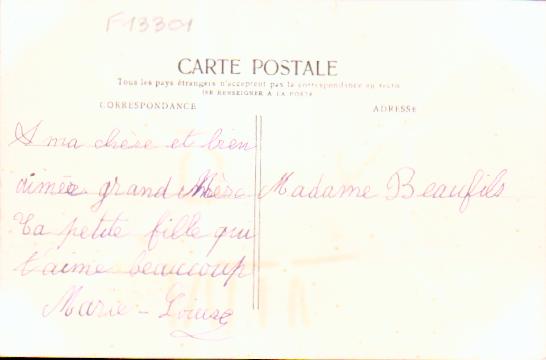 F13301
CARTE POSTALE
Tous les pays étrangers n'acceptent pas la correspondance au recto
(SE RENSEIGNER A LA POSTE
CORRESPONDANCE
ADRESSE
A ma chère et bien
aimée grand Mère
Ta petite fille qui
t'aime beaucoup
Marie - Louise
Madame Beaufils